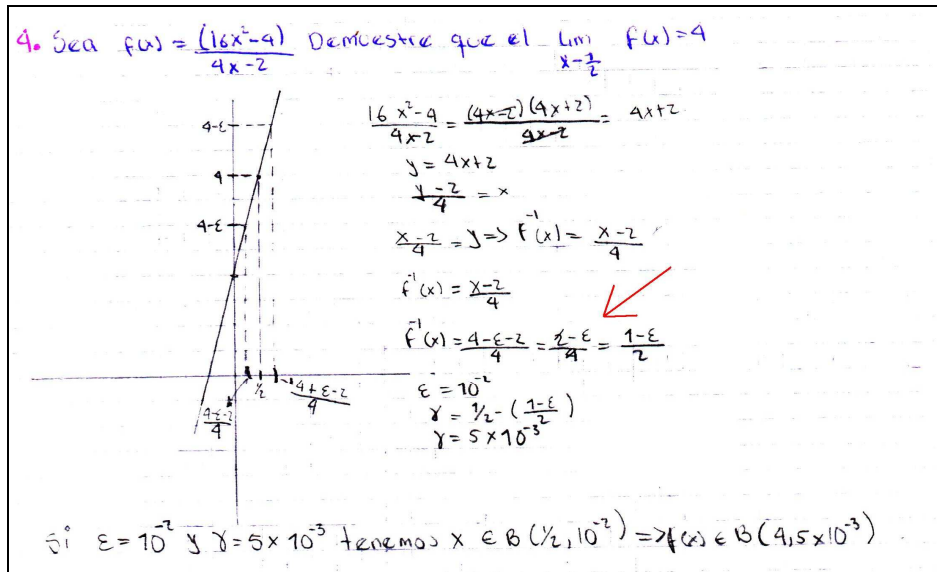 4. Sea f(x) = (16x²-4)/(4x-2) Demuestre que el Lim x-½ f(x)=4
4-ε
4
4-ε
(4-ε-2)/4
½
(4+ε-2)/4
(16x²-4)/(4x-2) = (4x-2)(4x+2)/(4x-2) = 4x+2
y = 4x+2
(y-2)/4 = x
(x-2)/4 = y => f⁻¹(x) = (x-2)/4
f⁻¹(x) = (x-2)/4
f⁻¹(x) = (4-ε-2)/4 = (2-ε)/4 = (1-ε)/2
ε = 10⁻²
γ = ½-((1-ε)/2)
γ = 5×10⁻³
Si ε = 10⁻² y γ = 5×10⁻³ tenemos x ∈ B(½, 10⁻²) => f(x) ∈ B(4, 5×10⁻³)